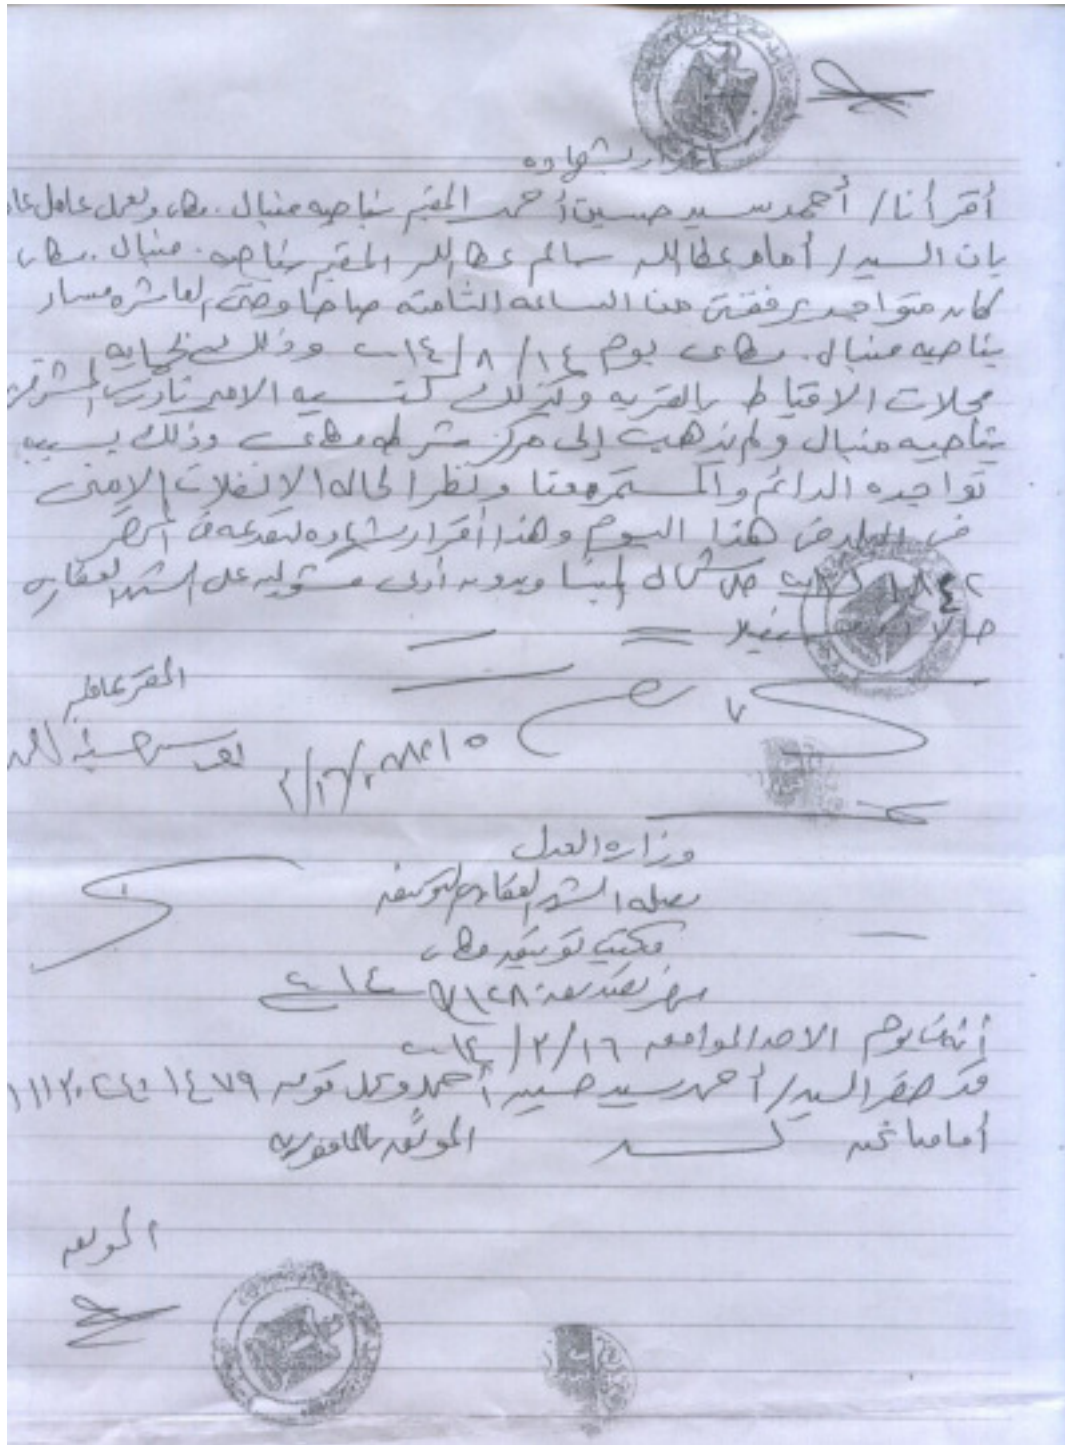 إقرار بشهادة
أقر أنا / أحمد سيد حسين أحمد المقيم بناحيه منبال . مطاى ويعمل عامل
بان السيد / أمام عطا الله سالم عطا الله المقيم بناحيه . منبال . مطاى
كان متواجد برفقتى من الساعه الثامنه صباحا وحتى العاشره مساء
بناحيه منبال . مطاى يوم ١٤ / ٨ / وذلك لحمايه
محلات الاقباط بالقريه وكذلك كنسيه الامير تادرس المشرقى
بناحيه منبال ولم يذهب إلى مركز شرطه مطاى وذلك بسبب
تواجده الدائم والمستمر معنا ونظرا لحاله الانفلات الامنى
فى البلد فى هذا اليوم وهذا أقرار بشهاده ليقدمه فى المحضر
شمال المنيا وبدون أدنى مسئوليه على الشهر العقارى
حالا مستقبلا
المقر بما فيه
أحمد سيد حسين أحمد
وزاره العدل
مصلحه الشهر العقارى والتوثيق
مكتب توثيق مطاى
محضر تصديق
أنه فى يوم الاحد الموافق ١٦ / ٢ /
قد حضر السيد / أحمد سيد حسين أحمد
أمامنا نحن الموثق بالمأموريه
الموثق